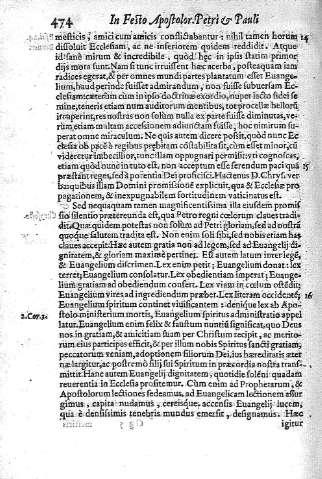 474 In Festo Apostolor. Petri & Pauli
mesticis, amici cum amicis conflictabantur: nihil tamen horum 14
dissoluit Ecclesiam, ac ne inferiorem quidem reddidit. Atque
id sanè mirum & incredibile, quòd hęc in ipsis statim primor
dijs mota sunt. Nam si tunc irruissent hæc acerba, posteaquam iam
radices egerat, & per omnes mundi partes plantatum esset Euange-
lium, haud perinde fuisset admirandum, non fuisse subuersam Ec-
clesiam: cæterùm cùm in ipsis doctrinæ exordijs, nuper iacto fidei se
mine, teneris etiam num auditorum mentibus, tot procellæ bellorũ
irreperint, res nostras non solùm nulla ex parte fuisse diminutas, ve-
rùm etiam multam accessionem adiunctam fuisse, hoc nimirum su-
perat omne miraculum. Ne quis autem dicere possit, quòd nunc Ec
clesia ob pacē à regibus prębitam constabilita sit, cùm esset minor, cũ
videretur imbecillior, tum illam oppugnari permisit: vt cognoscas,
etiam quòd nunc in tuto est, non accepitum esse ferendum pacis quã 15
præstant reges, sed à potentia Dei proficisci. Hactenus D. Chrys. ver-
banquibus illam Domini promissionem explicuit, qua & Ecclesiæ pro
pagationem, & inexpugnabilem fortitudinem vaticinatus est.
Sed nequaquam tamen magnificentissima illa eiusdem promis-
sio silentio prætereunda est, qua Petro regni cœlorum claues tradi-
dit. Quæ quidem potestas non solùm ad Petri gloriam, sed ad nostrã
quoque salutem tradita est. Non enim soli sibi, sed nobis etiam has
claues accepit. Hæc autem gratia non ad legem, sed ad Euangelij di-
gnitatem, & gloriam maximè pertinet. Est autem latum inter legē,
& Euangelium discrimen. Lex enim petit; Euangelium donat: lex
terret; Euangelium consolatur. Lex obedientiam imperat; Euange-
lium gratiam ad obediendum confert. Lex viam in cœlum ostēdit;
Euangelium vires ad ingrediendum præbet. Lex literam occidentē, 16
Euangelium Spiritum continet viuificantem: denique lex ab Apo-
2. Cor. 3. stolo ministerium mortis, Euangelium spiritus administratio appel
latur. Euangelium enim felix & faustum nuntiũ significat, quo Deus
nos in gratiam, & amicitiam suam per Christum recipit, ac merito-
rum eius participes efficit, & per illum nobis Spiritus sancti gratiam,
peccatorum veniam, adoptionem filiorum Dei, ius hæreditatis æter
næ largitur, ac postremò filij sui Spiritum in præcordia nostra trans-
mittit. Hanc autem Euangelij dignitatem, quotidie solēni quadam
reuerentia in Ecclesia profitemur. Cùm enim ad Prophetarum, &
Apostolorum lectiones sedeamus, ad Euangelicam lectionem assur
gimus, capita nudamus, cereisque, accensis Euangelij lucem,
qua è densissimis tenebris mundus emersit, designamus. Hæc
igitur